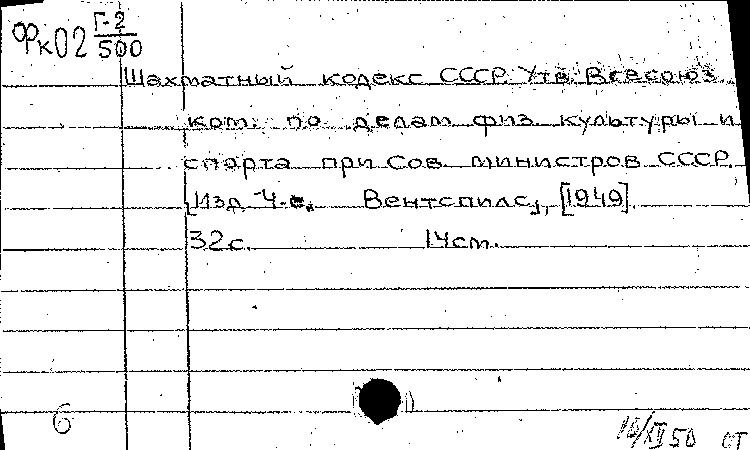 Фк02 Г-2/500
Шахматный кодекс СССР. Утв. Всесоюз.
ком. по делам физ. культуры и
спорта при Сов. министров СССР.
[Изд. 4-е. Вентспилс], [1949].
32с. 14см.
6
50 ОТ